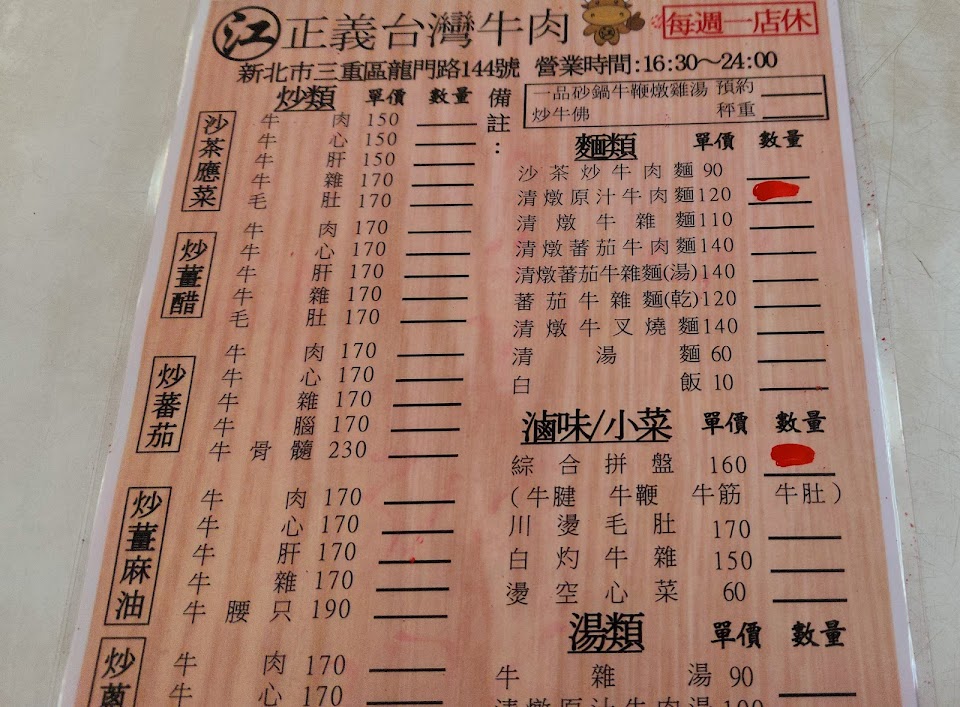 江 正義台灣牛肉
每週一店休
新北市三重區龍門路144號 營業時間:16:30～24:00
炒類 單價 數量
沙茶應菜
牛肉 150
牛心 150
牛肝 150
牛雜 170
毛肚 170
炒薑醋
牛肉 170
牛心 170
牛肝 170
牛雜 170
毛肚 170
炒蕃茄
牛肉 170
牛心 170
牛雜 170
牛腦 170
牛骨髓 230
炒薑麻油
牛肉 170
牛心 170
牛肝 170
牛雜 170
牛腰只 190
炒蔥
牛肉 170
牛心 170
備註:
一品砂鍋牛鞭燉雞湯 預約
炒牛佛 秤重
麵類 單價 數量
沙茶炒牛肉麵 90
清燉原汁牛肉麵 120
清燉牛雜麵 110
清燉蕃茄牛肉麵 140
清燉蕃茄牛雜麵(湯) 140
蕃茄牛雜麵(乾) 120
清燉牛叉燒麵 140
清湯麵 60
白飯 10
滷味/小菜 單價 數量
綜合拼盤 160
(牛腱 牛鞭 牛筋 牛肚)
川燙毛肚 170
白灼牛雜 150
燙空心菜 60
湯類 單價 數量
牛雜湯 90
清燉原汁牛肉湯 100